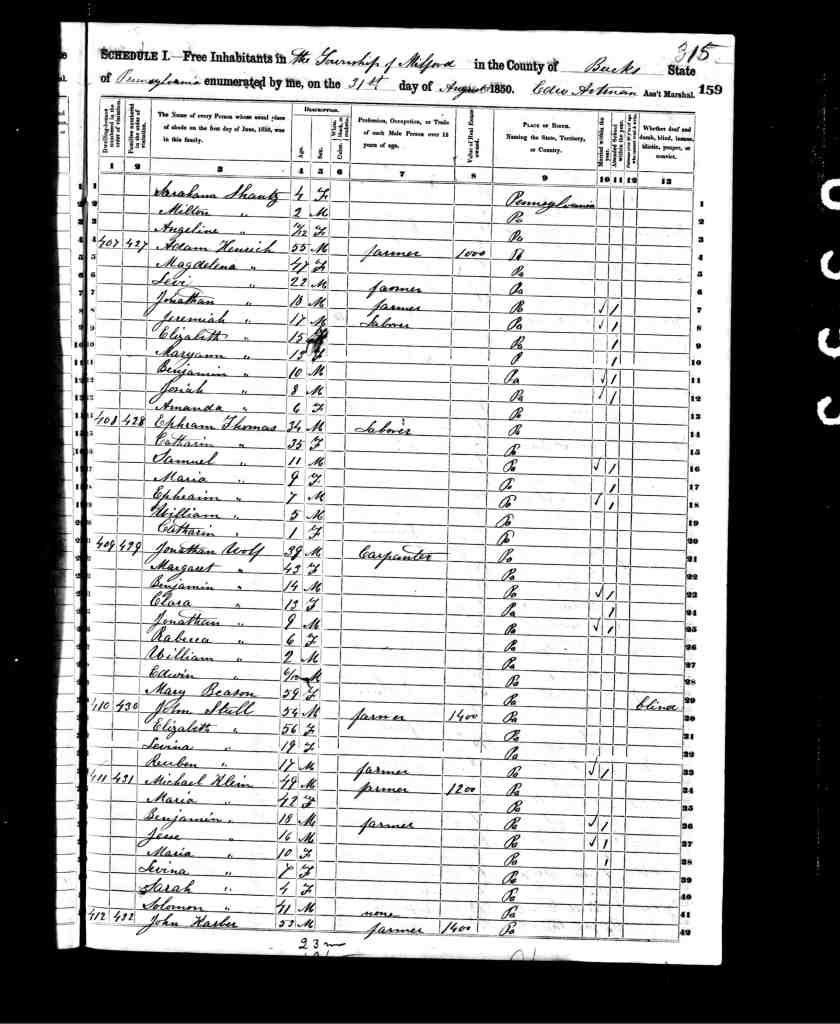 315
SCHEDULE I.—Free Inhabitants in the Township of Milford in the County of Bucks State
of Pennsylvania enumerated by me, on the 31st day of August 1850. Edw Artman Ass't Marshal. 159
Dwelling-houses numbered in the order of visitation. Families numbered in the order of visitation. The Name of every Person whose usual place of abode on the first day of June, 1850, was in this family. DESCRIPTION. Age. Sex. Color. Profession, Occupation, or Trade of each Male Person over 15 years of age. Value of Real Estate owned. PLACE OF BIRTH. Naming the State, Territory, or Country. Married within the year. Attended School within the year. Whether deaf and dumb, blind, insane, idiotic, pauper, or convict.
1 2 3 4 5 6 7 8 9 10 11 12 13
1 Sarahann Shantz 4 F Pennsylvania 1
2 Milton " 2 M Pa 2
3 Angeline " /12 F Pa 3
4 407 427 Adam Henrich 55 M farmer 1000 4
5 Magdelena " 47 F Pa 5
6 Levi " 22 M farmer Pa 6
7 Jonathan " 18 M farmer Pa ✓ 1 7
8 Jeremiah " 17 M Labover Pa ✓ 1 8
9 Elizabeth " 15 Pa 1 9
10 Maryann " 13 F P 1 10
11 Benjamin " 10 M Pa ✓ 1 11
12 Josiah " 8 M Pa ✓ 1 12
13 Amanda " 6 F Pa 13
14 408 428 Ephram Thomas 34 M Labover Pa 14
15 Catharin " 35 F Pa 15
16 Samuel " 11 M Pa ✓ 1 16
17 Maria " 9 F Pa 1 17
18 Ephraim " 7 M Pa ✓ 1 18
19 William " 5 M Pa 19
20 Catharin " 1 F Pa 20
21 409 429 Jonathan Wolf 39 M Carpanter Pa 21
22 Margaret " 43 F Pa 22
23 Benjamin " 14 M Pa ✓ 1 23
24 Clara " 13 F Pa 1 24
25 Jonathan " 9 M Pa ✓ 1 25
26 Rabecca " 6 F Pa 26
27 William " 2 M Pa 27
28 Edwin " /12 M Pa 28
29 Mary Beason 59 F Pa blind 29
30 410 430 John Stull 54 M farmer 1400 Pa 30
31 Elizabeth " 56 F Pa 31
32 Levina " 19 F Pa 32
33 Reuben " 17 M farmer Pa ✓ 1 33
34 411 431 Michael Klein 49 M farmer 1200 Pa 34
35 Maria " 42 F Pa 35
36 Benjamin " 18 M farmer Pa ✓ 1 36
37 Jesse " 16 M Pa ✓ 1 37
38 Maria " 10 F Pa 1 38
39 Levina " 7 F Pa 39
40 Sarah " 4 F Pa 40
41 Solomon " 41 M none Pa 41
42 412 432 John Harber 53 M farmer 1400 Pa 42
23 m